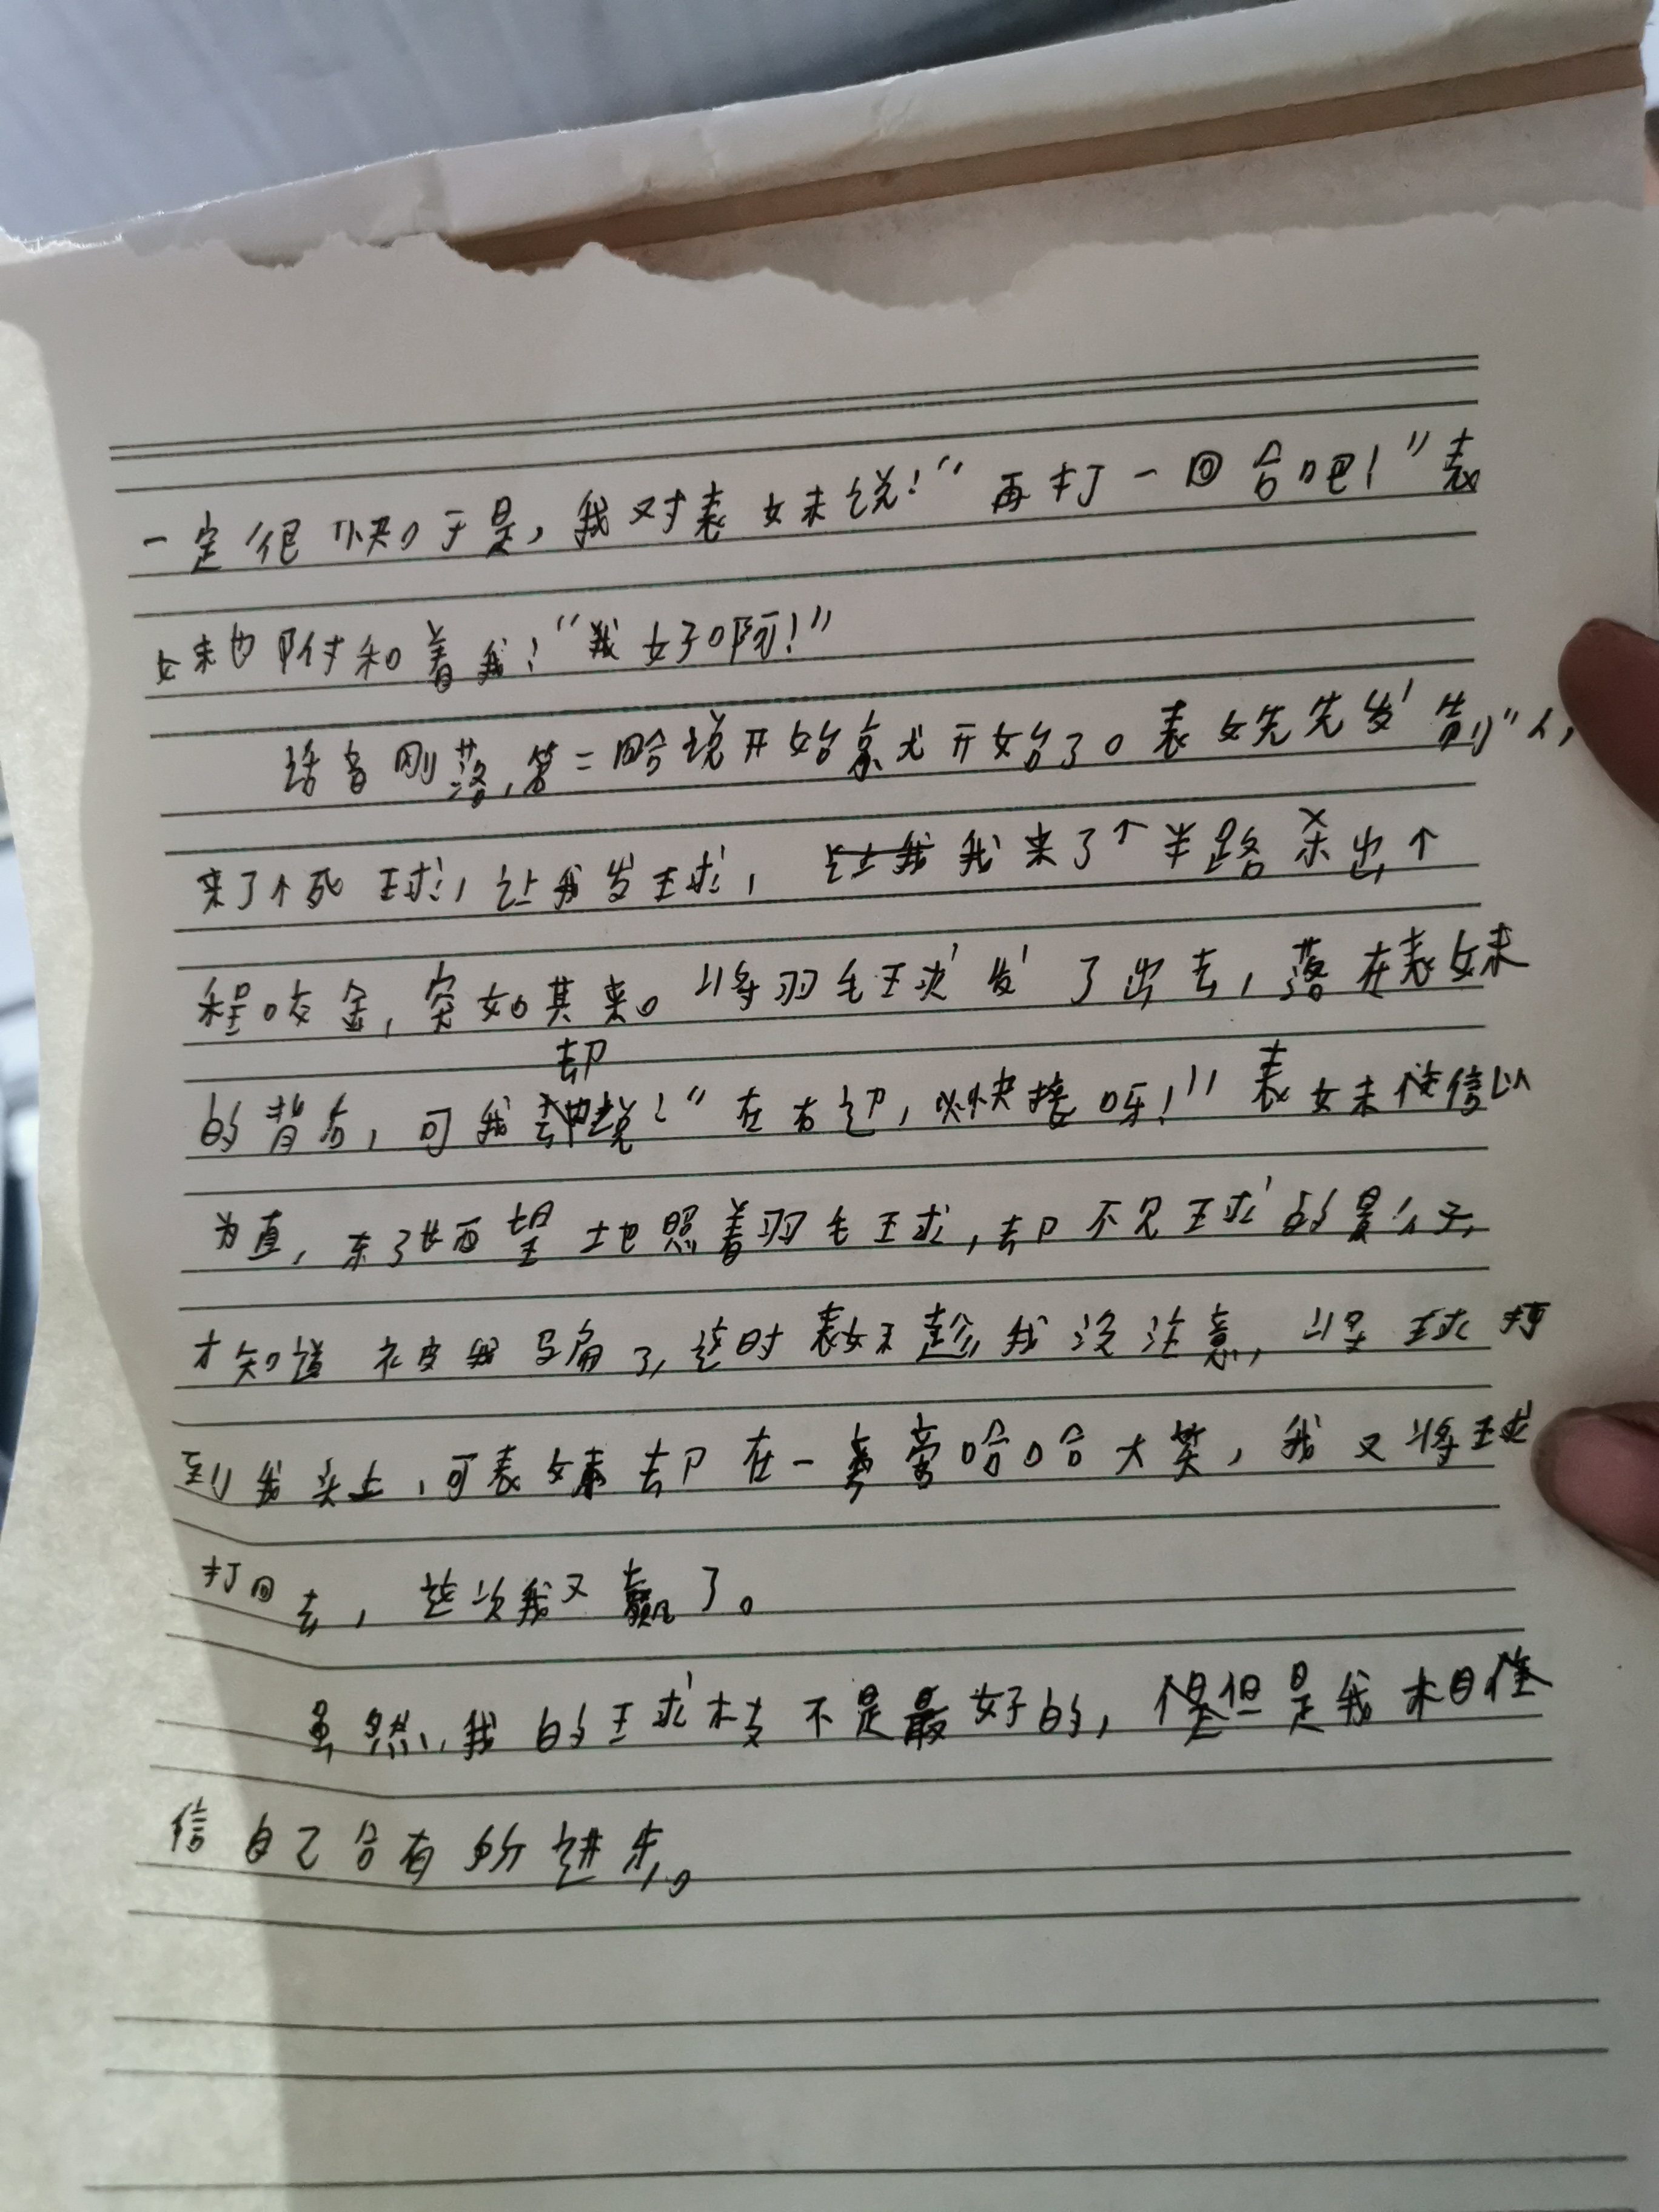 一定很快。于是，我对表妹说：“再打一回合吧！”表
妹也附和着我：“我好啊！”
话音刚落，第二开始了。表先先发制人，
来了个死球，让我发球，我来了个半路杀出个
程咬金，突如其来。将羽毛球发了出去，落在表妹
的背后，可我却说：“在右边，快接呀！”表妹信以
为真，东张西望地照着羽毛球，却不见球的影子，
才知道被我骗了，这时表妹趁我没注意，球打
到我头上，可表妹却在一旁哈哈大笑，我又将球
打回去，这次我又赢了。
虽然，我的球技不是最好的，但是我相
信自己会有所进步。